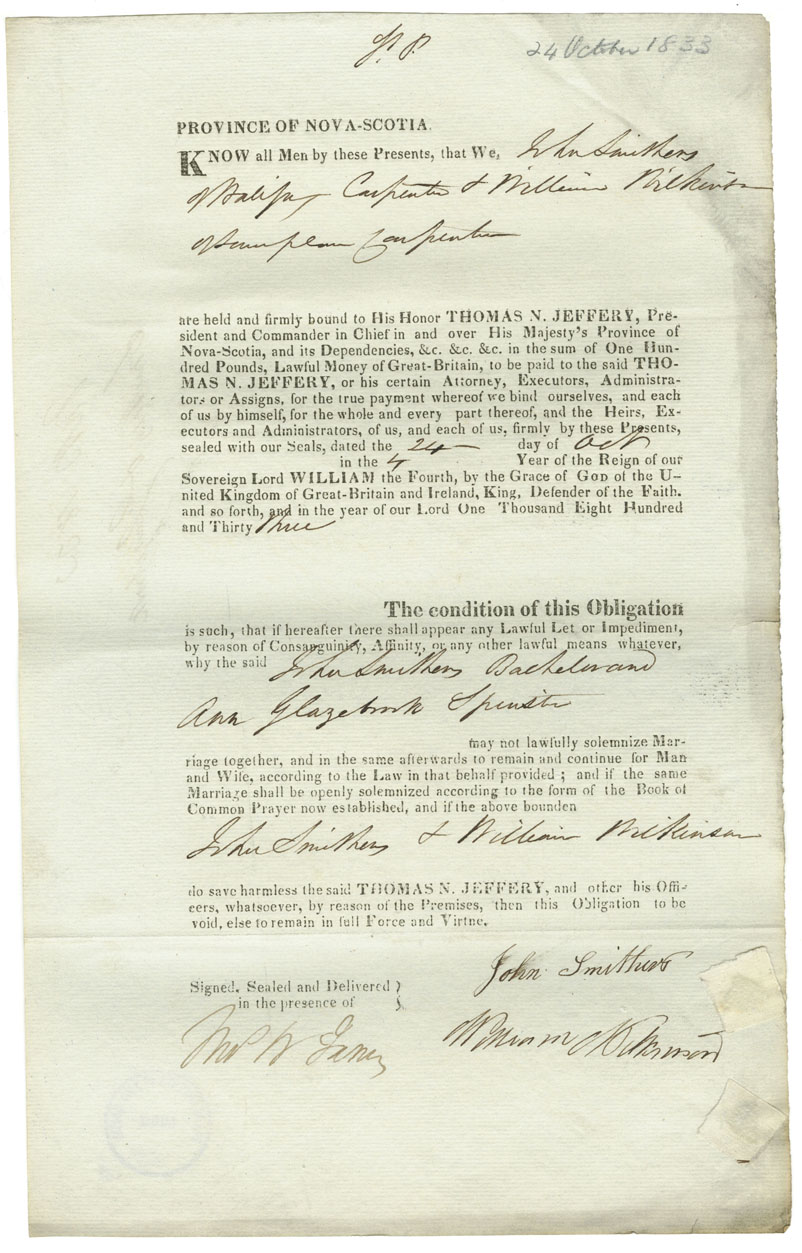 St. P.
24 October 1833
PROVINCE OF NOVA-SCOTIA.
KNOW all Men by these Presents, that We, John Smithers
of Halifax Carpenter & William Wilkinson
of same place Carpenter
are held and firmly bound to His Honor THOMAS N. JEFFERY, Pre-
sident and Commander in Chief in and over His Majesty's Province of
Nova-Scotia, and its Dependencies, &c. &c. &c. in the sum of One Hun-
dred Pounds, Lawful Money of Great-Britain, to be paid to the said THO-
MAS N. JEFFERY, or his certain Attorney, Executors, Administra-
tors or Assigns, for the true payment whereof we bind ourselves, and each
of us by himself, for the whole and every part thereof, and the Heirs, Ex-
ecutors and Administrators, of us, and each of us, firmly by these Presents,
sealed with our Seals, dated the 24 day of Oct
in the 4 Year of the Reign of our
Sovereign Lord WILLIAM the Fourth, by the Grace of GOD of the U-
nited Kingdom of Great-Britain and Ireland, King, Defender of the Faith.
and so forth, and in the year of our Lord One Thousand Eight Hundred
and Thirty three
The condition of this Obligation
is such, that if hereafter there shall appear any Lawful Let or Impediment,
by reason of Consanguinity, Affinity, or any other lawful means whatever,
why the said John Smithers Bachelor and
Ann Glazebrook Spinster
may not lawfully solemnize Mar-
riage together, and in the same afterwards to remain and continue for Man
and Wife, according to the Law in that behalf provided ; and if the same
Marriage shall be openly solemnized according to the form of the Book of
Common Prayer now established, and if the above bounden
John Smithers & William Wilkinson
do save harmless the said THOMAS N. JEFFERY, and other his Offi-
cers, whatsoever, by reason of the Premises, then this Obligation to be
void, else to remain in full Force and Virtne.
John Smithers
Signed, Sealed and Delivered }
in the presence of }
William Wilkinson